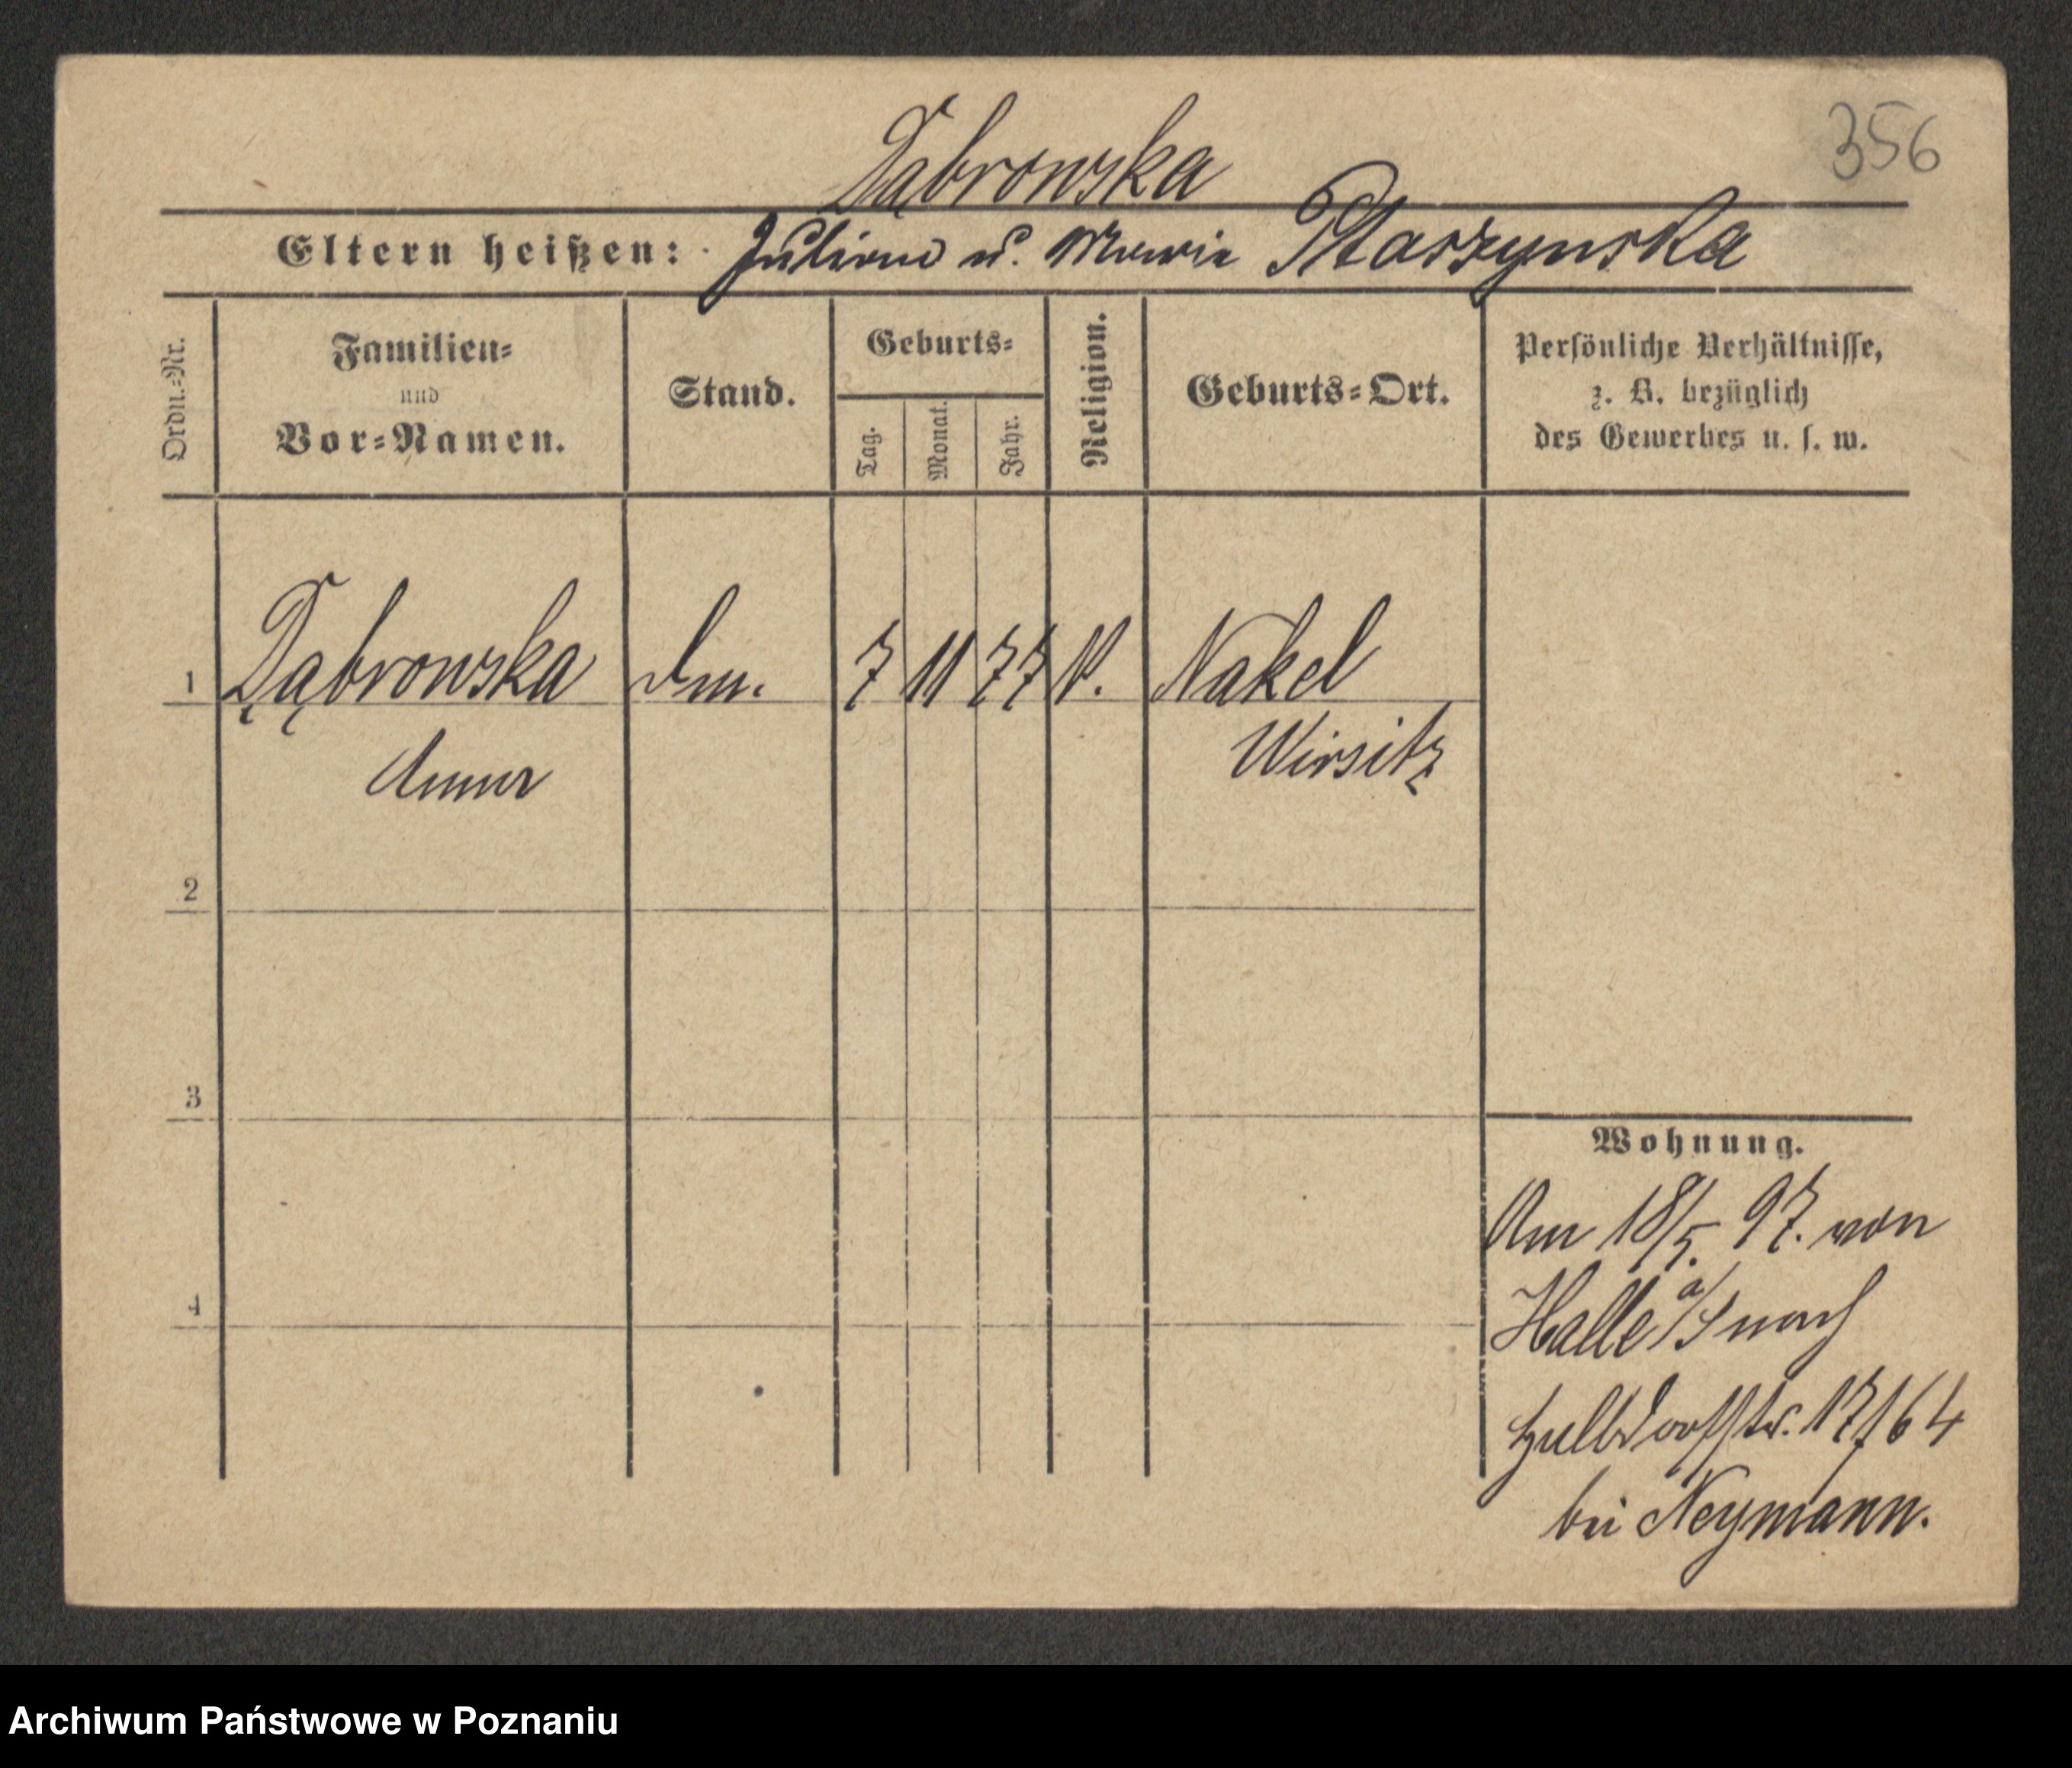 356
Dąbrowska
Eltern heißen: Julian u. Marie Ptaszynska
Ordn.-Nr.
Familien-
und
Vor-Namen.
Stand.
Geburts-
Tag.
Monat.
Jahr.
Religion.
Geburts-Ort.
Persönliche Verhältnisse,
z. B. bezüglich
des Gewerbes u. s. w.
1 Dąbrowska 7 11 77 Nakel
Anna Wirsitz
2
3
4
Wohnung.
Am 18/5. 97. von
Halle a/S nach
17/64
bei Neymann.
Archiwum Państwowe w Poznaniu